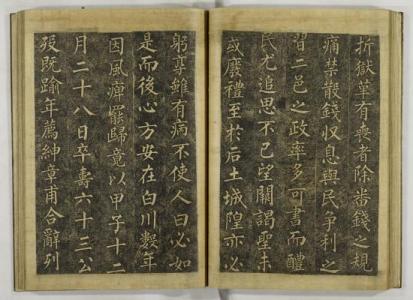 折獄革有喪者除畨錢之規
痛禁散錢収息與民争利之
習二邑之政率多可書而醴
民尤追思不已望闕謁聖未
或廢禮至於后土城隍亦必
躬享雖有病不使人曰必如
是而後心方安在白川數年
因風痺罷歸竟以甲子十二
月二十八日卒壽六十三公
歿既踰年薦紳章甫合辭列